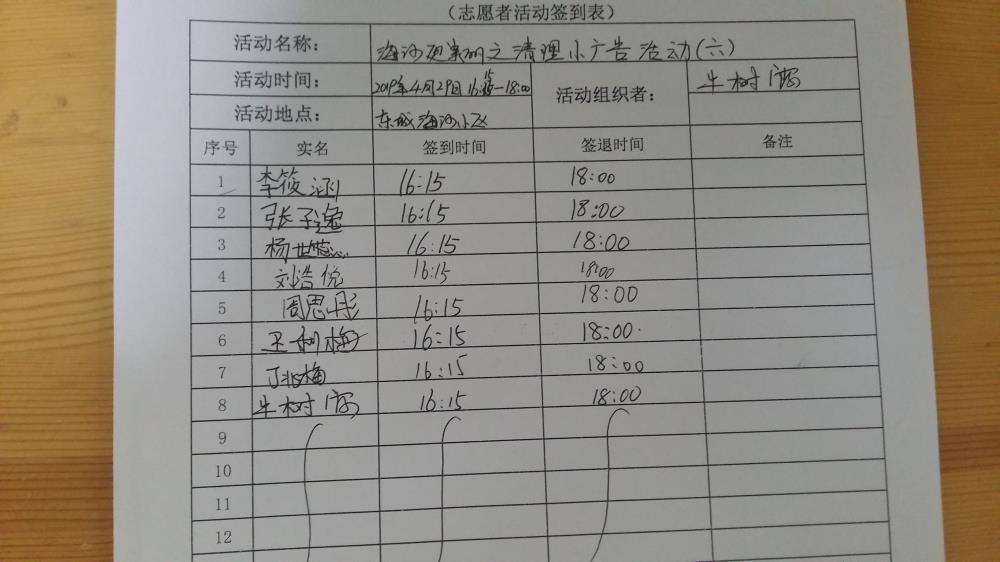 （志愿者活动签到表）
活动名称： 海沙 之清理小广告活动(六)
活动时间： 2019年4月29日 16:15—18:00 活动组织者： 牛树
活动地点： 东城海沙小区
序号 实名 签到时间 签退时间 备注
1 李筱涵 16:15 18:00
2 张子逸 16:15 18:00
3 杨世 16:15 18:00
4 刘浩悦 16:15 18:00
5 周思彤 16:15 18:00
6 王利梅 16:15 18:00
7 丁兆梅 16:15 18:00
8 牛树 16:15 18:00
9
10
11
12